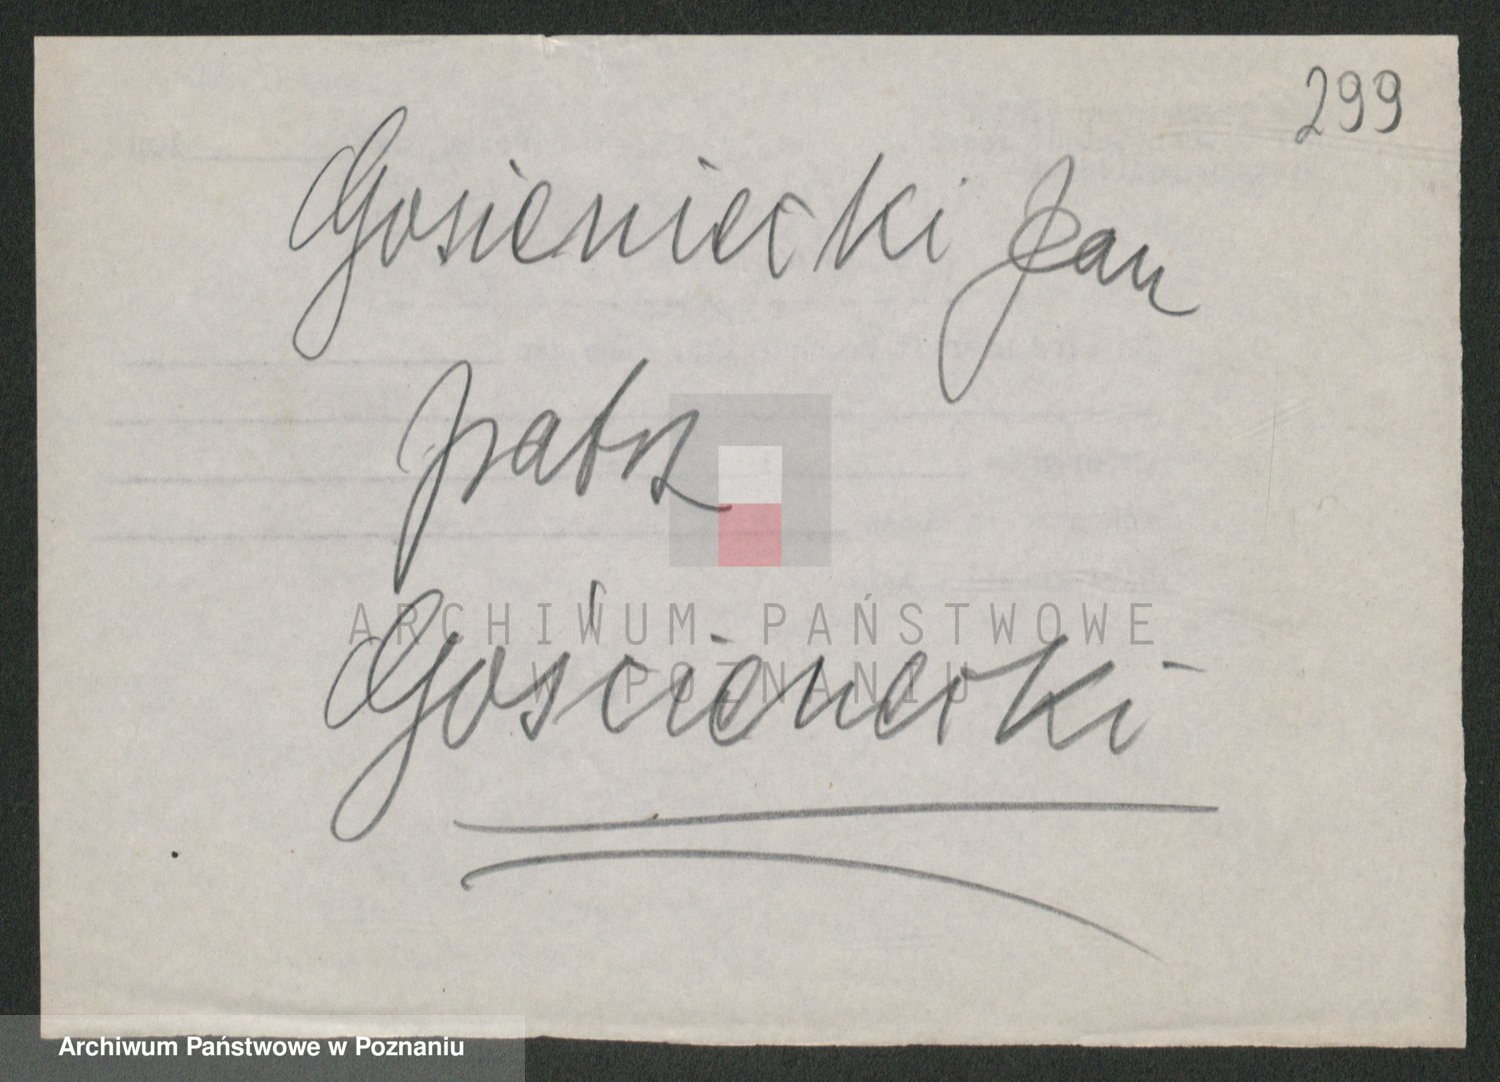 299
Gosieniecki Jan
patrz
ARCHIWUM PAŃSTWOWE
W POZNANIU
Gościenecki
Archiwum Państwowe w Poznaniu